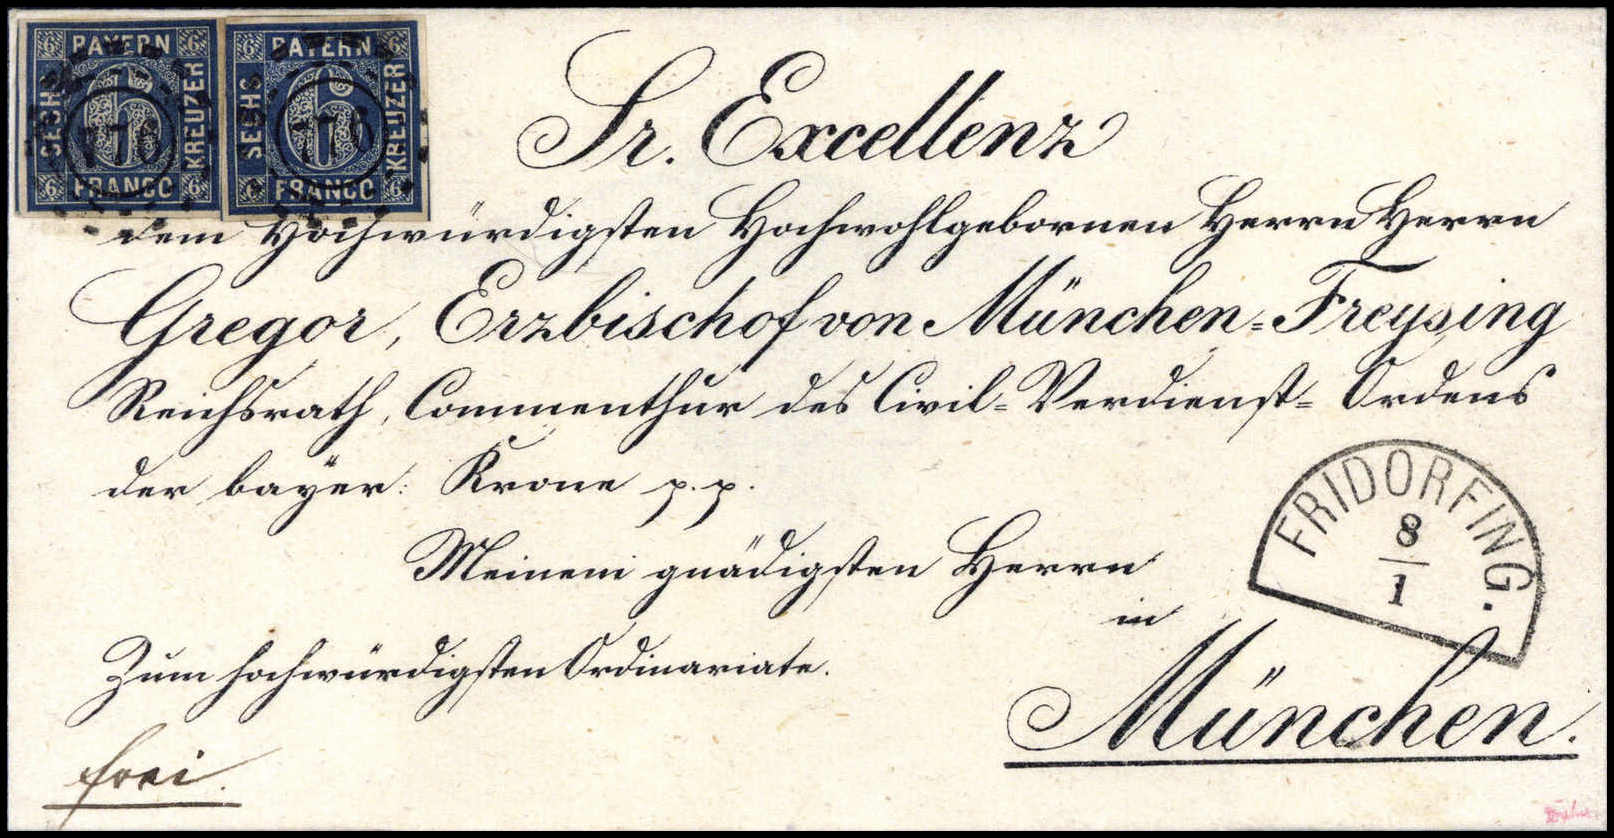 BAYERN BAYERN
6 6 6 6
SECHS KREUZER SECHS KREUZER
6 6
776 776
6 6 6 6
FRANCO FRANCO
Sr. Excellenz
dem Hochwürdigsten Hochwohlgebornen Herrn Herrn
Gregor, Erzbischof von München=Freysing
Reichsrath, Commenthur des Civil=Verdienst=Ordens
der bayer: Krone p.p.
Meinem gnädigsten Herrn
in
München.
Zum hochwürdigsten Ordinariate.
frei.
FRIDORFING.
8
1